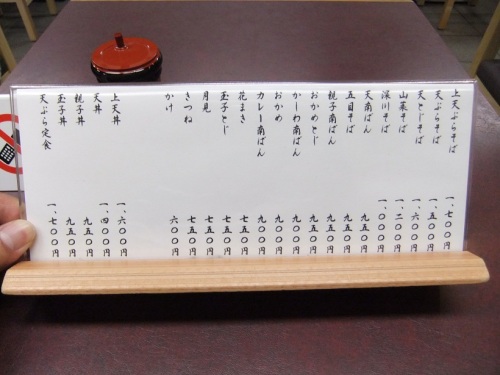 上天ぷらそば 一、七〇〇円
天ぷらそば 一、五〇〇円
天とじそば 一、六〇〇円
山菜そば 一、二〇〇円
深川そば 一、〇〇〇円
天南ばん 九五〇円
五目そば 九五〇円
親子南ばん 九五〇円
おかめとじ 九五〇円
かしわ南ばん 九〇〇円
おかめ 九〇〇円
カレー南ばん 九〇〇円
花まき 七五〇円
玉子とじ 七五〇円
月見 七五〇円
きつね 七五〇円
かけ 六〇〇円
上天丼 一、六〇〇円
天丼 一、四〇〇円
親子丼 九五〇円
玉子丼 九五〇円
天ぷら定食 一、七〇〇円